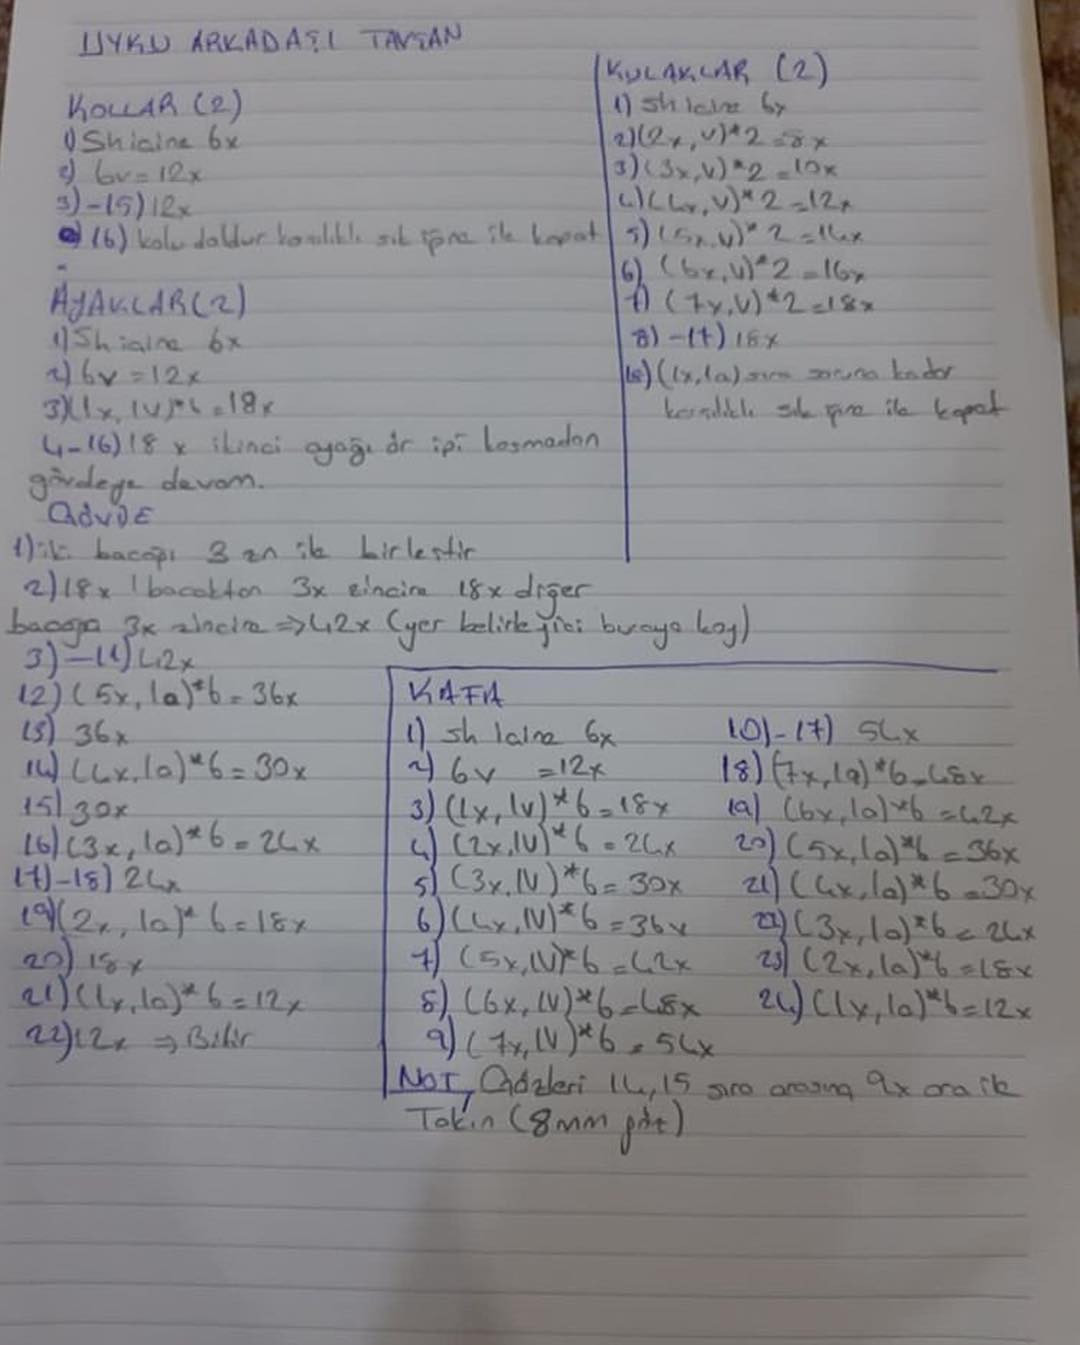 UYKU ARKADAŞI TAVŞAN
KOLLAR (2)
1) Sh içine 6x
2) 6v = 12x
3) - 15) 12x
16) kolu doldur karşılıklı sık iğne ile kapat
AYAKLAR (2)
1) Sh içine 6x
2) 6v = 12x
3) (1x, 1v)*6 = 18x
4-16) 18 x ikinci ayağı ör ipi kesmeden
gövdeye devam.
GÖVDE
1) iki bacağı 3 zn ile birleştir
2) 18x 1 bacaktan 3x zincire 18x diğer
bacağa 3x zincire => 42x (yer belirleyici buraya koy)
3) - 11) 42x
12) (5x, 1a)*6 = 36x
13) 36x
14) (4x, 1a)*6 = 30x
15) 30x
16) (3x, 1a)*6 = 24x
17) - 18) 24x
19) (2x, 1a)*6 = 18x
20) 18x
21) (1x, 1a)*6 = 12x
22) 12x => Bitir
KULAKLAR (2)
1) Sh içine 6x
2) (2x, v)*2 = 8x
3) (3x, v)*2 = 10x
4) (4x, v)*2 = 12x
5) (5x, v)*2 = 14x
6) (6x, v)*2 = 16x
7) (7x, v)*2 = 18x
8) - 17) 18x
18) (1x, 1a) sıra sonuna kadar
karşılıklı sık iğne ile kapat
KAFA
1) sh içine 6x
2) 6v = 12x
3) (1x, 1v)*6 = 18x
4) (2x, 1v)*6 = 24x
5) (3x, 1v)*6 = 30x
6) (4x, 1v)*6 = 36x
7) (5x, 1v)*6 = 42x
8) (6x, 1v)*6 = 48x
9) (7x, 1v)*6 = 54x
10) - 17) 54x
18) (7x, 1a)*6 = 48x
19) (6x, 1a)*6 = 42x
20) (5x, 1a)*6 = 36x
21) (4x, 1a)*6 = 30x
22) (3x, 1a)*6 = 24x
23) (2x, 1a)*6 = 18x
24) (1x, 1a)*6 = 12x
NOT, Gözleri 14, 15 sıra arasına 9x ara ile
Takın (8mm göz)